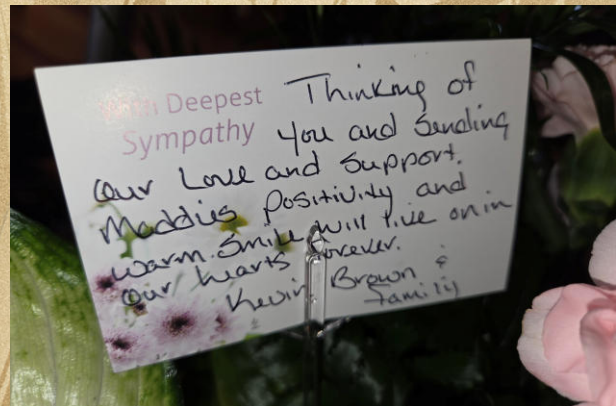 With Deepest
Sympathy
Thinking of
you and Sending
Our Love and Support.
Maddies Positivity and
warm Smile will live on in
Our hearts forever.
Kevin Brown &
family